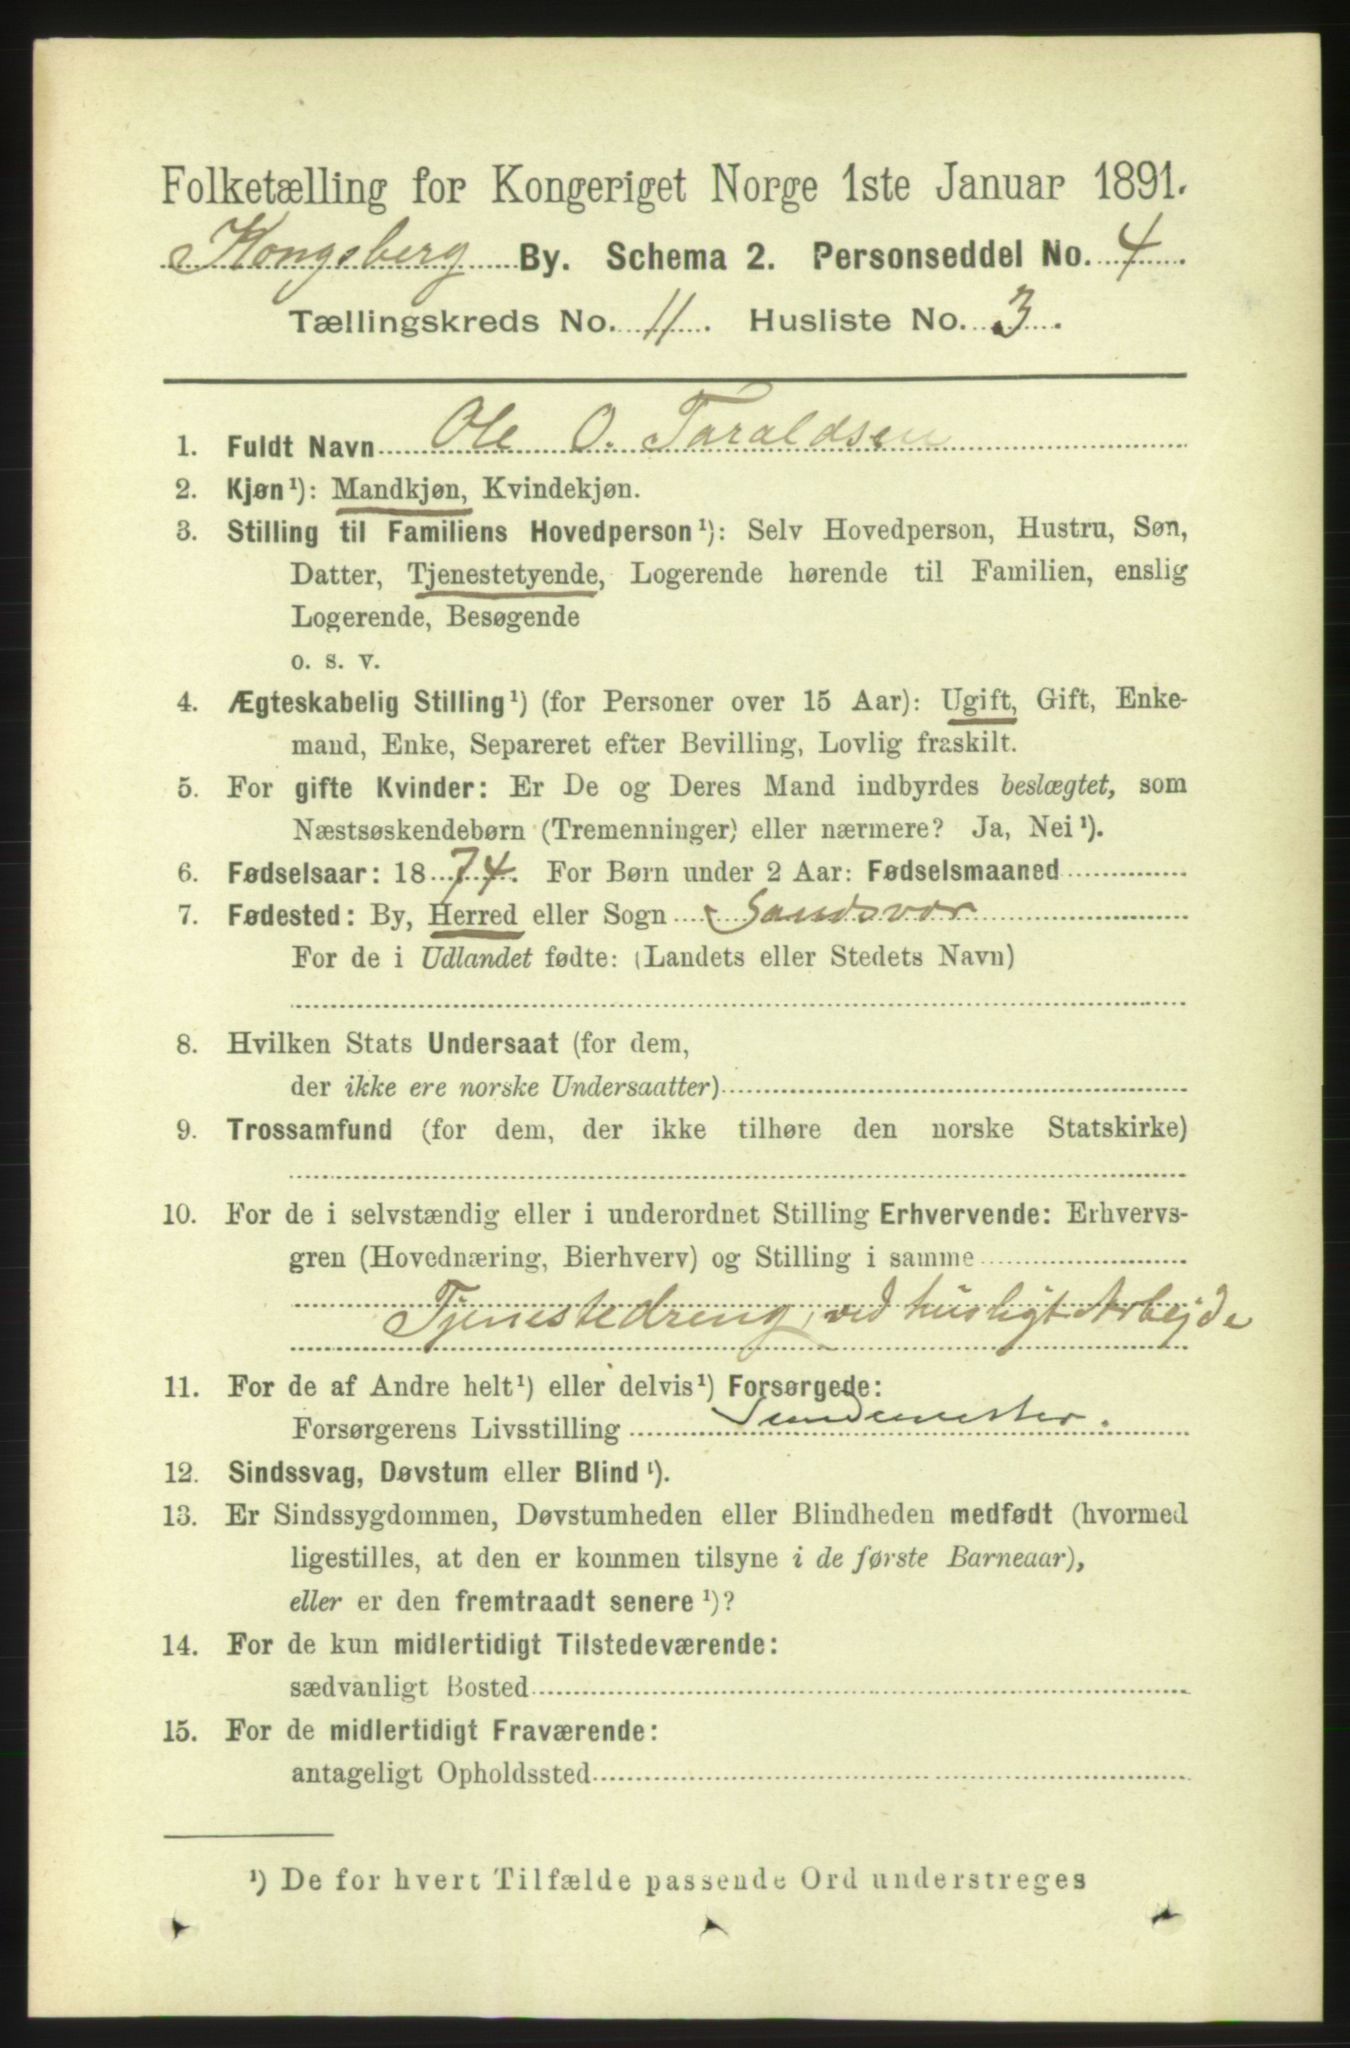 Folketælling for Kongeriget Norge 1ste Januar 1891.
Kongsberg By. Schema 2. Personseddel No. 4.
Tællingskreds No. 11. Husliste No. 3.
1. Fuldt Navn Ole O. Taraldsen
2. Kjøn¹): Mandkjøn, Kvindekjøn.
3. Stilling til Familiens Hovedperson¹): Selv Hovedperson, Hustru, Søn,
Datter, Tjenestetyende, Logerende hørende til Familien, enslig
Logerende, Besøgende
o. s. v.
4. Ægteskabelig Stilling¹) (for Personer over 15 Aar): Ugift, Gift, Enke-
mand, Enke, Separeret efter Bevilling, Lovlig fraskilt.
5. For gifte Kvinder: Er De og Deres Mand indbyrdes beslægtet, som
Næstsøskendebørn (Tremenninger) eller nærmere? Ja, Nei¹).
6. Fødselsaar: 1874. For Børn under 2 Aar: Fødselsmaaned
7. Fødested: By, Herred eller Sogn Sandsvær
For de i Udlandet fødte: (Landets eller Stedets Navn)
8. Hvilken Stats Undersaat (for dem,
der ikke ere norske Undersaatter)
9. Trossamfund (for dem, der ikke tilhøre den norske Statskirke)
10. For de i selvstændig eller i underordnet Stilling Erhvervende: Erhvervs-
gren (Hovednæring, Bierhverv) og Stilling i samme
Tjenestedreng, ved husligt Arbejde
11. For de af Andre helt¹) eller delvis¹) Forsørgede:
Forsørgerens Livsstilling
12. Sindssvag, Døvstum eller Blind¹).
13. Er Sindssygdommen, Døvstumheden eller Blindheden medfødt (hvormed
ligestilles, at den er kommen tilsyne i de første Barneaar),
eller er den fremtraadt senere¹)?
14. For de kun midlertidigt Tilstedeværende:
sædvanligt Bosted
15. For de midlertidigt Fraværende:
antageligt Opholdssted
¹) De for hvert Tilfælde passende Ord understreges